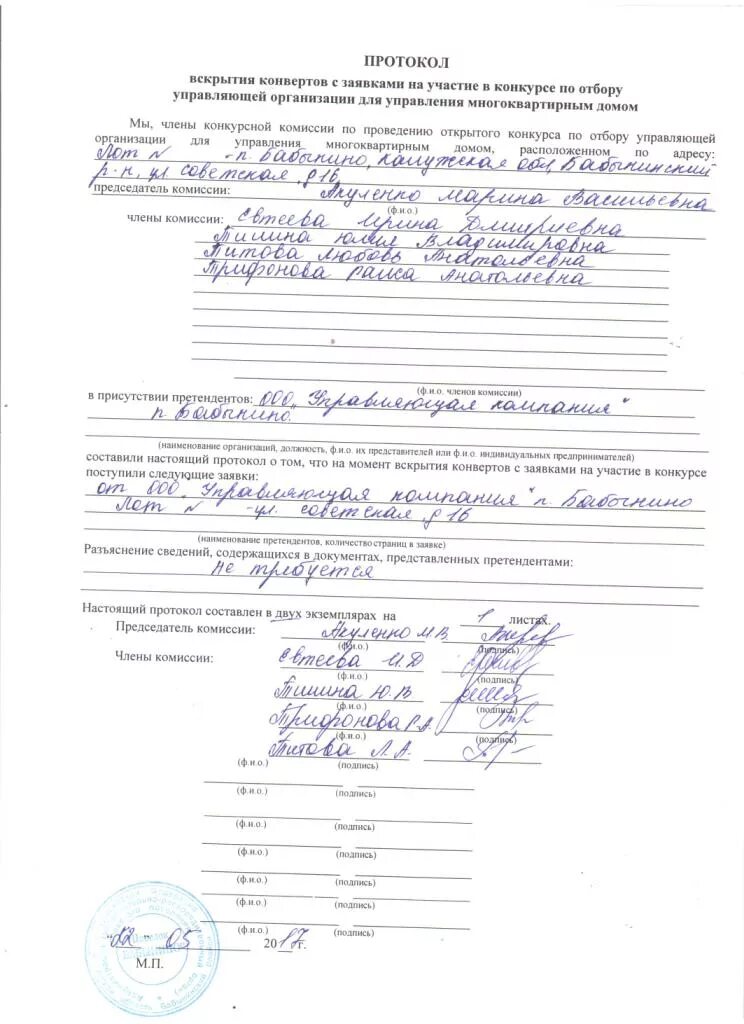 ПРОТОКОЛ
вскрытия конвертов с заявками на участие в конкурсе по отбору
управляющей организации для управления многоквартирным домом
Мы, члены конкурсной комиссии по проведению открытого конкурса по отбору управляющей
организации для управления многоквартирным домом, расположенном по адресу:
Лот № -п. Бабынино, Калужская обл, Бабынинский
р-н, ул советская, д 16
председатель комиссии: Акуленко Марина Васильевна
(ф.и.о.)
члены комиссии: Евтеева Ирина Дмитриевна
Тишина Юлия Владимировна
Титова Любовь Анатольевна
Трифонова Раиса Анатольевна
(ф.и.о. членов комиссии)
в присутствии претендентов: ООО „Управляющая компания"
п Бабынино.
(наименование организаций, должность, ф.и.о. их представителей или ф.и.о. индивидуальных предпринимателей)
составили настоящий протокол о том, что на момент вскрытия конвертов с заявками на участие в конкурсе
поступили следующие заявки:
от ООО „Управляющая компания" п. Бабынино
Лот № -ул. советская, д 16
(наименование претендентов, количество страниц в заявке)
Разъяснение сведений, содержащихся в документах, представленных претендентами:
Не требуется
Настоящий протокол составлен в двух экземплярах на 1 листах.
Председатель комиссии: Акуленко М.В
(ф.и.о.) (подпись)
Члены комиссии: Евтеева И.Д
(ф.и.о.) (подпись)
Тишина Ю.В
(ф.и.о.) (подпись)
Трифонова Р.А.
(ф.и.о.) (подпись)
Титова Л.А.
(ф.и.о.) (подпись)
(ф.и.о.) (подпись)
(ф.и.о.) (подпись)
(ф.и.о.) (подпись)
(ф.и.о.) (подпись)
(ф.и.о.) (подпись)
(ф.и.о.) (подпись)
"22 " 05 2017г.
М.П.